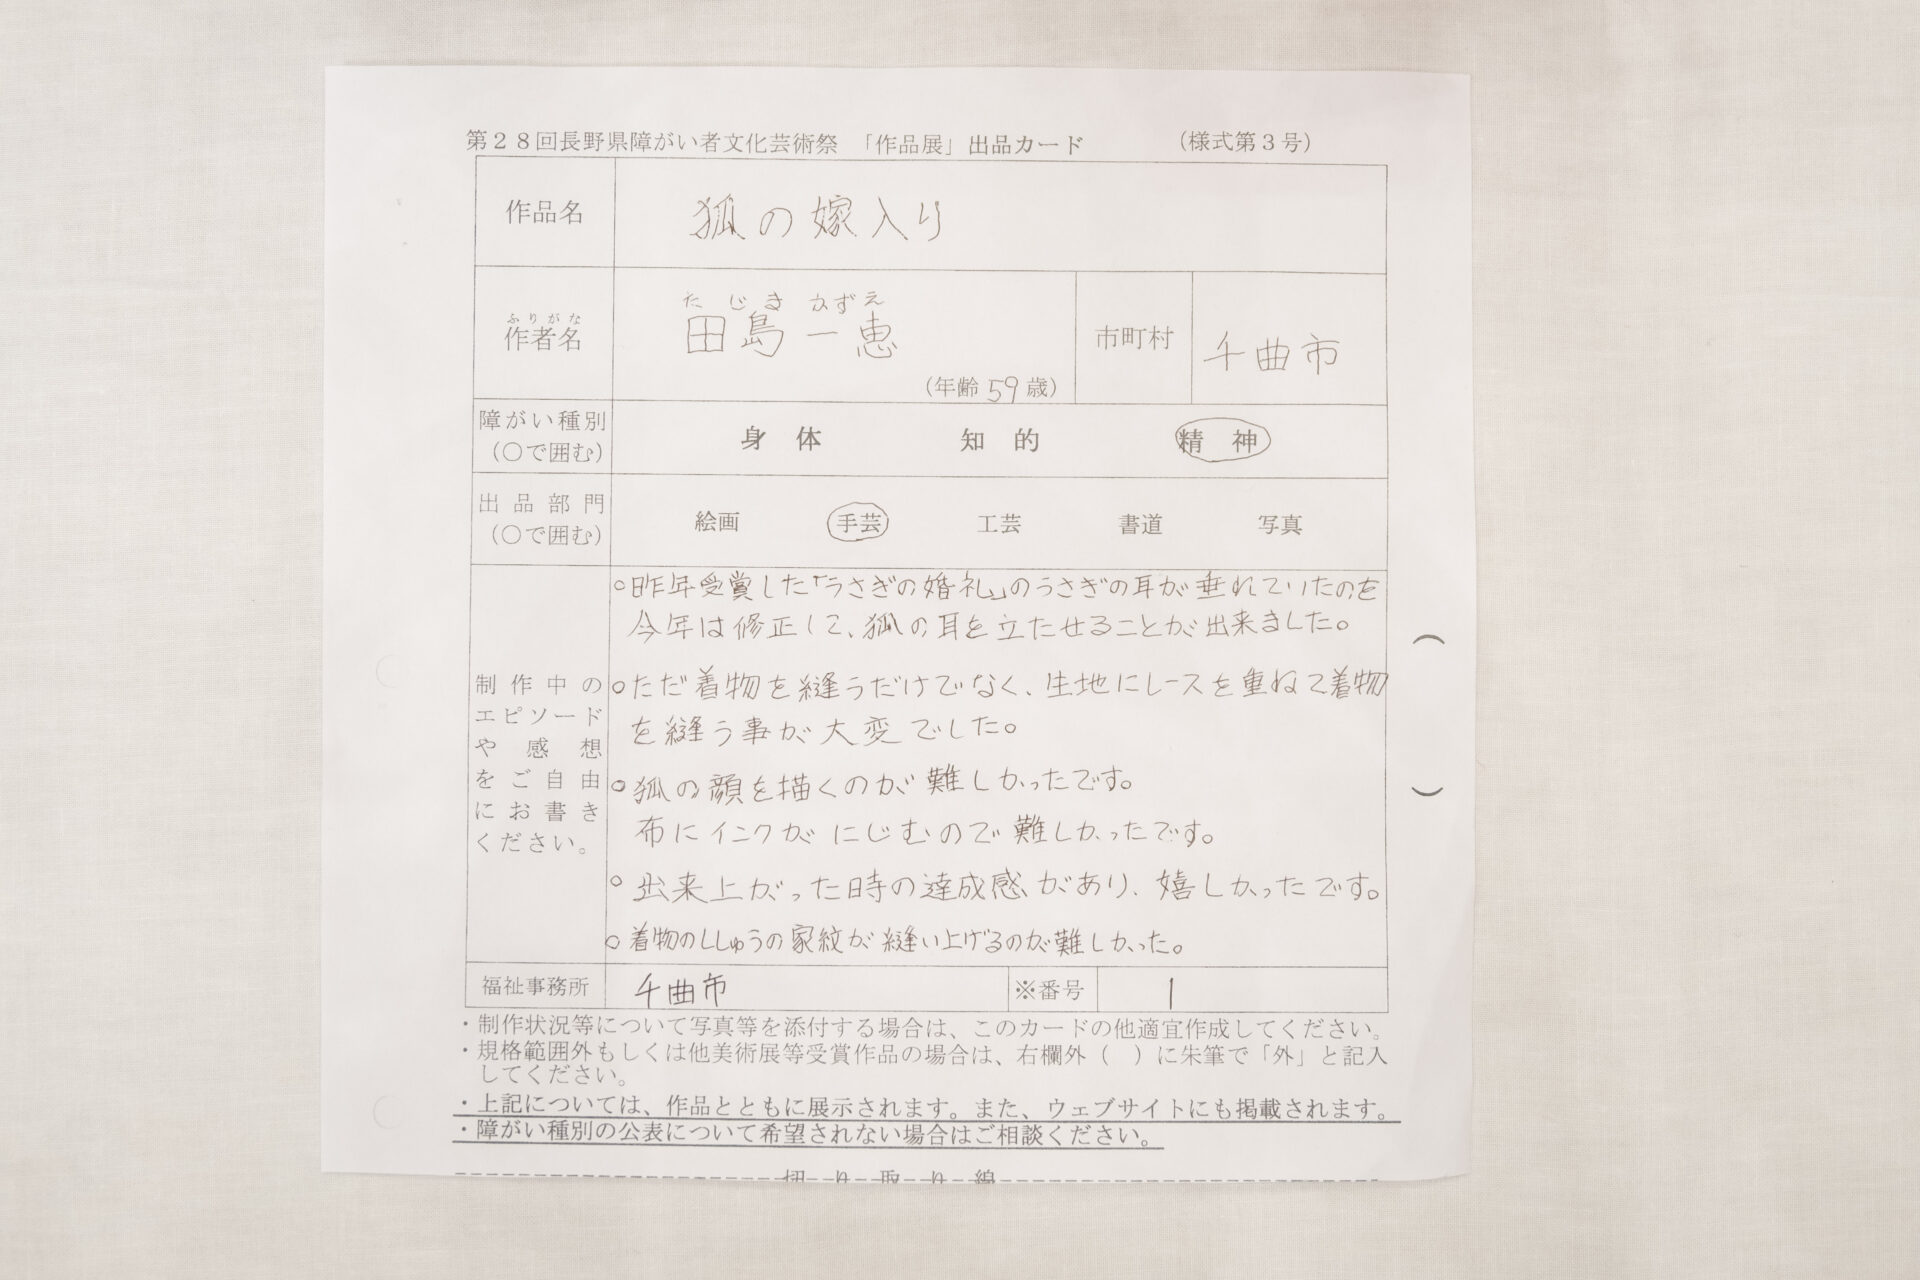 第２８回長野県障がい者文化芸術祭　「作品展」出品カード　（様式第３号）
作品名　狐の嫁入り
たじま　かずえ
ふりがな
作者名　田島一恵　（年齢 59 歳）　市町村　千曲市
障がい種別
（○で囲む）　身　体　知　的　精　神
出品部門
（○で囲む）　絵画　手芸　工芸　書道　写真
制作中の
エピソード
や感想
をご自由
にお書き
ください。
○昨年受賞した「うさぎの婚礼」のうさぎの耳が垂れていたのを
今年は修正して、狐の耳を立たせることが出来ました。
○ただ着物を縫うだけでなく、生地にレースを重ねて着物
を縫う事が大変でした。
○狐の顔を描くのが難しかったです。
布にインクがにじむので難しかったです。
○出来上がった時の達成感があり、嬉しかったです。
○着物のししゅうの家紋が縫い上げるのが難しかった。
（
）
福祉事務所　千曲市　※番号　1
・制作状況等について写真等を添付する場合は、このカードの他適宜作成してください。
・規格範囲外もしくは他美術展等受賞作品の場合は、右欄外（　）に朱筆で「外」と記入
してください。
・上記については、作品とともに展示されます。また、ウェブサイトにも掲載されます。
・障がい種別の公表について希望されない場合はご相談ください。
切り取り線